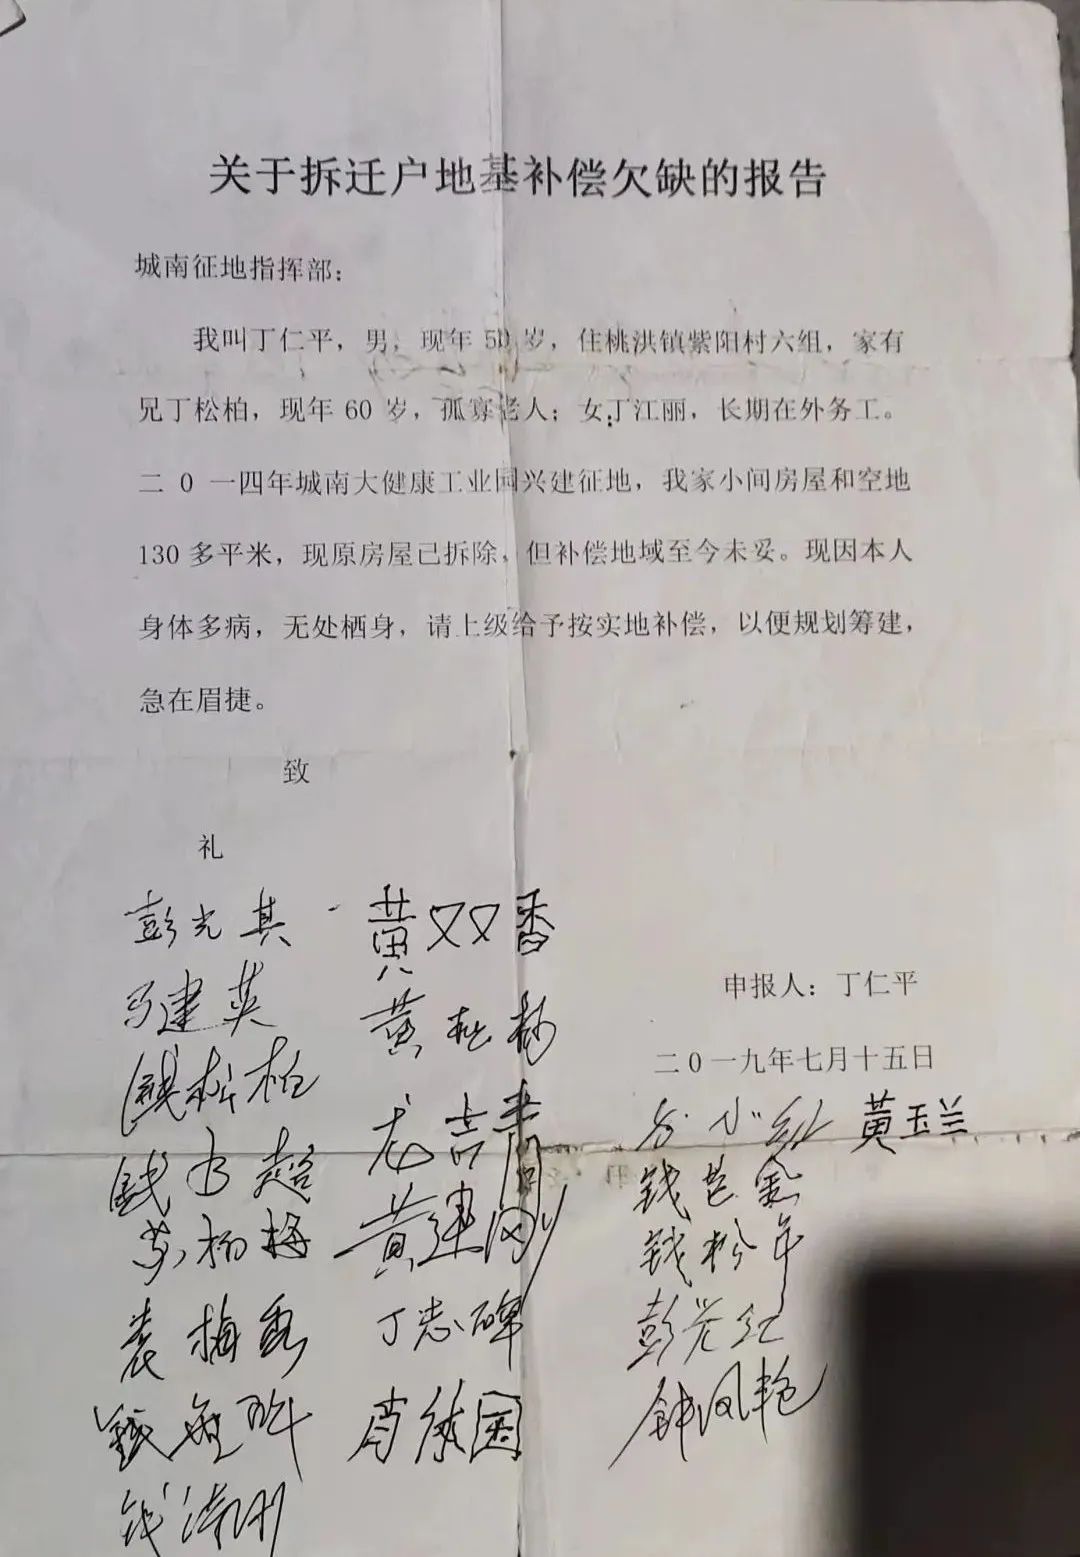 关于拆迁户地基补偿欠缺的报告
城南征地指挥部：
我叫丁仁平，男，现年50岁，住桃洪镇紫阳村六组，家有
兄丁松柏，现年60岁，孤寡老人；女丁江丽，长期在外务工。
二0一四年城南大健康工业园兴建征地，我家小间房屋和空地
130多平米，现原房屋已拆除，但补偿地域至今未妥。现因本人
身体多病，无处栖身，请上级给予按实地补偿，以便规划筹建，
急在眉捷。
致
礼
申报人：丁仁平
二0一九年七月十五日
彭光其
马建英
钱松柏
黄双香
龙吉青
黄建刚
丁志碑
黄玉兰
钱松年
钟凤艳